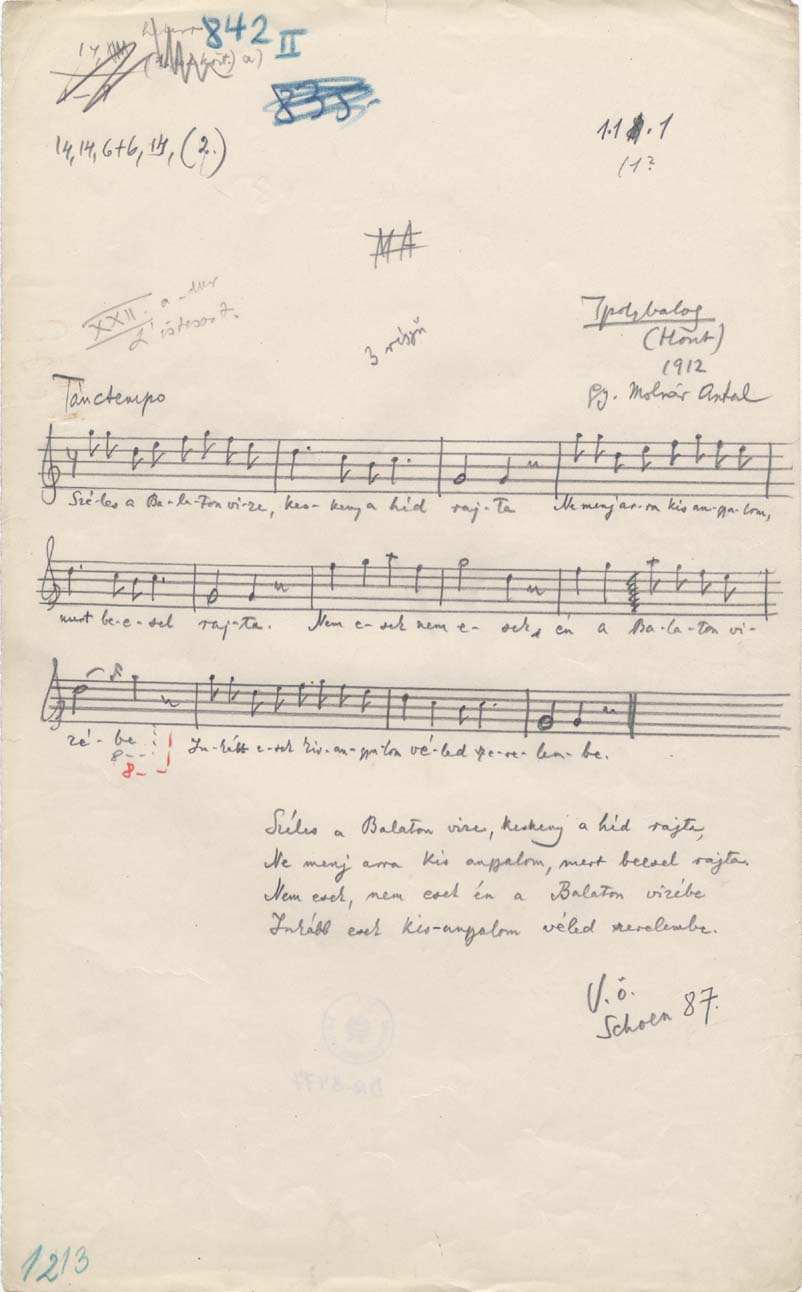 842
II
835.
14, 14, 6+6, 14, (2.)
1.1 .1
(1?
MA
XXII. a-dur
3 részű
Ipolybalog
(Hont)
1912
gy. Molnár Antal
Tánctempo
Szé-les a Ba-la-ton vi-ze, kes-keny a híd raj-ta Ne menj ar-ra kis an-gya-lom,
mert be-e-sel raj-ta. Nem e-sek nem e-sek, én a Ba-la-ton vi-
zé-be In-kább e-sek kis-an-gya-lom vé-led sze-re-lem-be.
8--
8--
Széles a Balaton vize, keskeny a híd rajta,
Ne menj arra kis angyalom, mert beesel rajta.
Nem esek, nem esek én a Balaton vizébe
Inkább esek kis-angyalom véled szerelembe.
V.ö.
Schoen 87.
1213